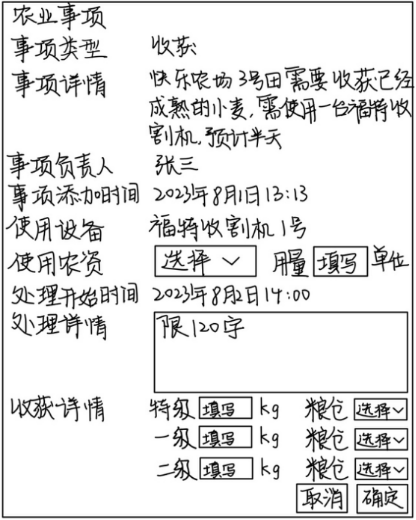 农业事项
事项类型 收获
事项详情 快乐农场3号田需要收获已经
成熟的小麦,需使用一台福特收
割机,预计半天
事项负责人 张三
事项添加时间 2023年8月1日13:13
使用设备 福特收割机1号
使用农资 选择 用量 填写 单位
处理开始时间 2023年8月2日14:00
处理详情 限120字
收获详情 特级 填写 kg 粮仓 选择
一级 填写 kg 粮仓 选择
二级 填写 kg 粮仓 选择
取消 确定